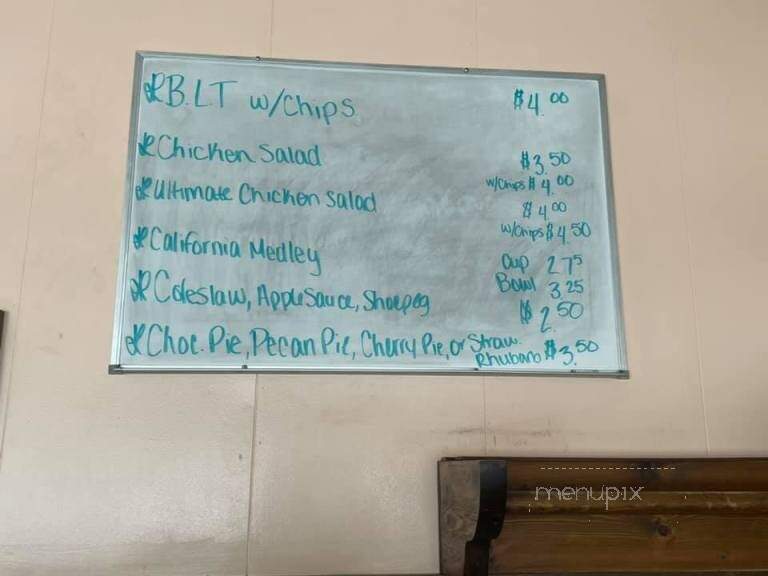 B.LT w/Chips $4.00
Chicken Salad $3.50
w/Chips $4.00
Ultimate Chicken Salad $4.00
w/Chips $4.50
California Medley Cup 2.75
Bowl 3.25
Coleslaw, AppleSauce, Shoepeg $2.50
Choc. Pie, Pecan Pie, Cherry Pie, or Straw. Rhubarb $3.50
menupix